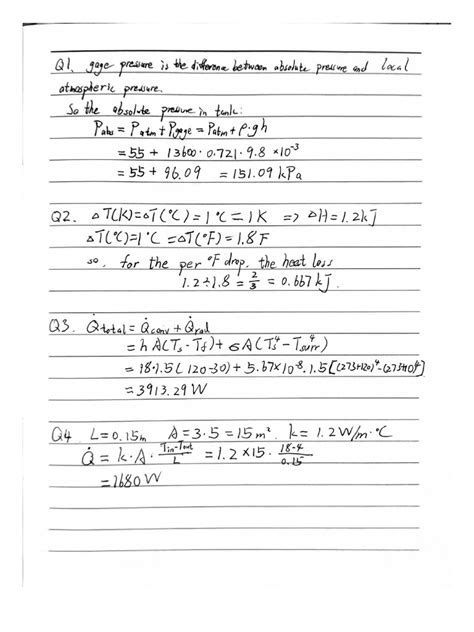 Q1. gage pressure is the difference between absolute pressure and local
atmospheric pressure.
So the absolute pressure in tank:
Pabs = Patm + Pgage = Patm + ρ·gh
= 55 + 13600 · 0.721 · 9.8 ×10⁻³
= 55 + 96.09 = 151.09 kPa
Q2. △T(K)=△T(°C)=1°C=1K => △H=1.2kJ
△T(°C)=1°C =△T(°F)=1.8F
so, for the per °F drop, the heat loss
1.2÷1.8 = 2/3 = 0.667 kJ.
Q3. Q̇total = Q̇conv + Q̇rad
= hA(Ts-Tf)+ εA(Ts⁴-Tsurr⁴)
= 18·1.5(120-30) + 5.67×10⁻⁸·1.5[(273+120)⁴-(273+0)⁴]
= 3913.29 W
Q4. L=0.15m A=3·5=15m². k=1.2W/m·°C
Q̇ = k·A· Tin-Tout/L = 1.2×15· 18-4/0.15
= 1680 W